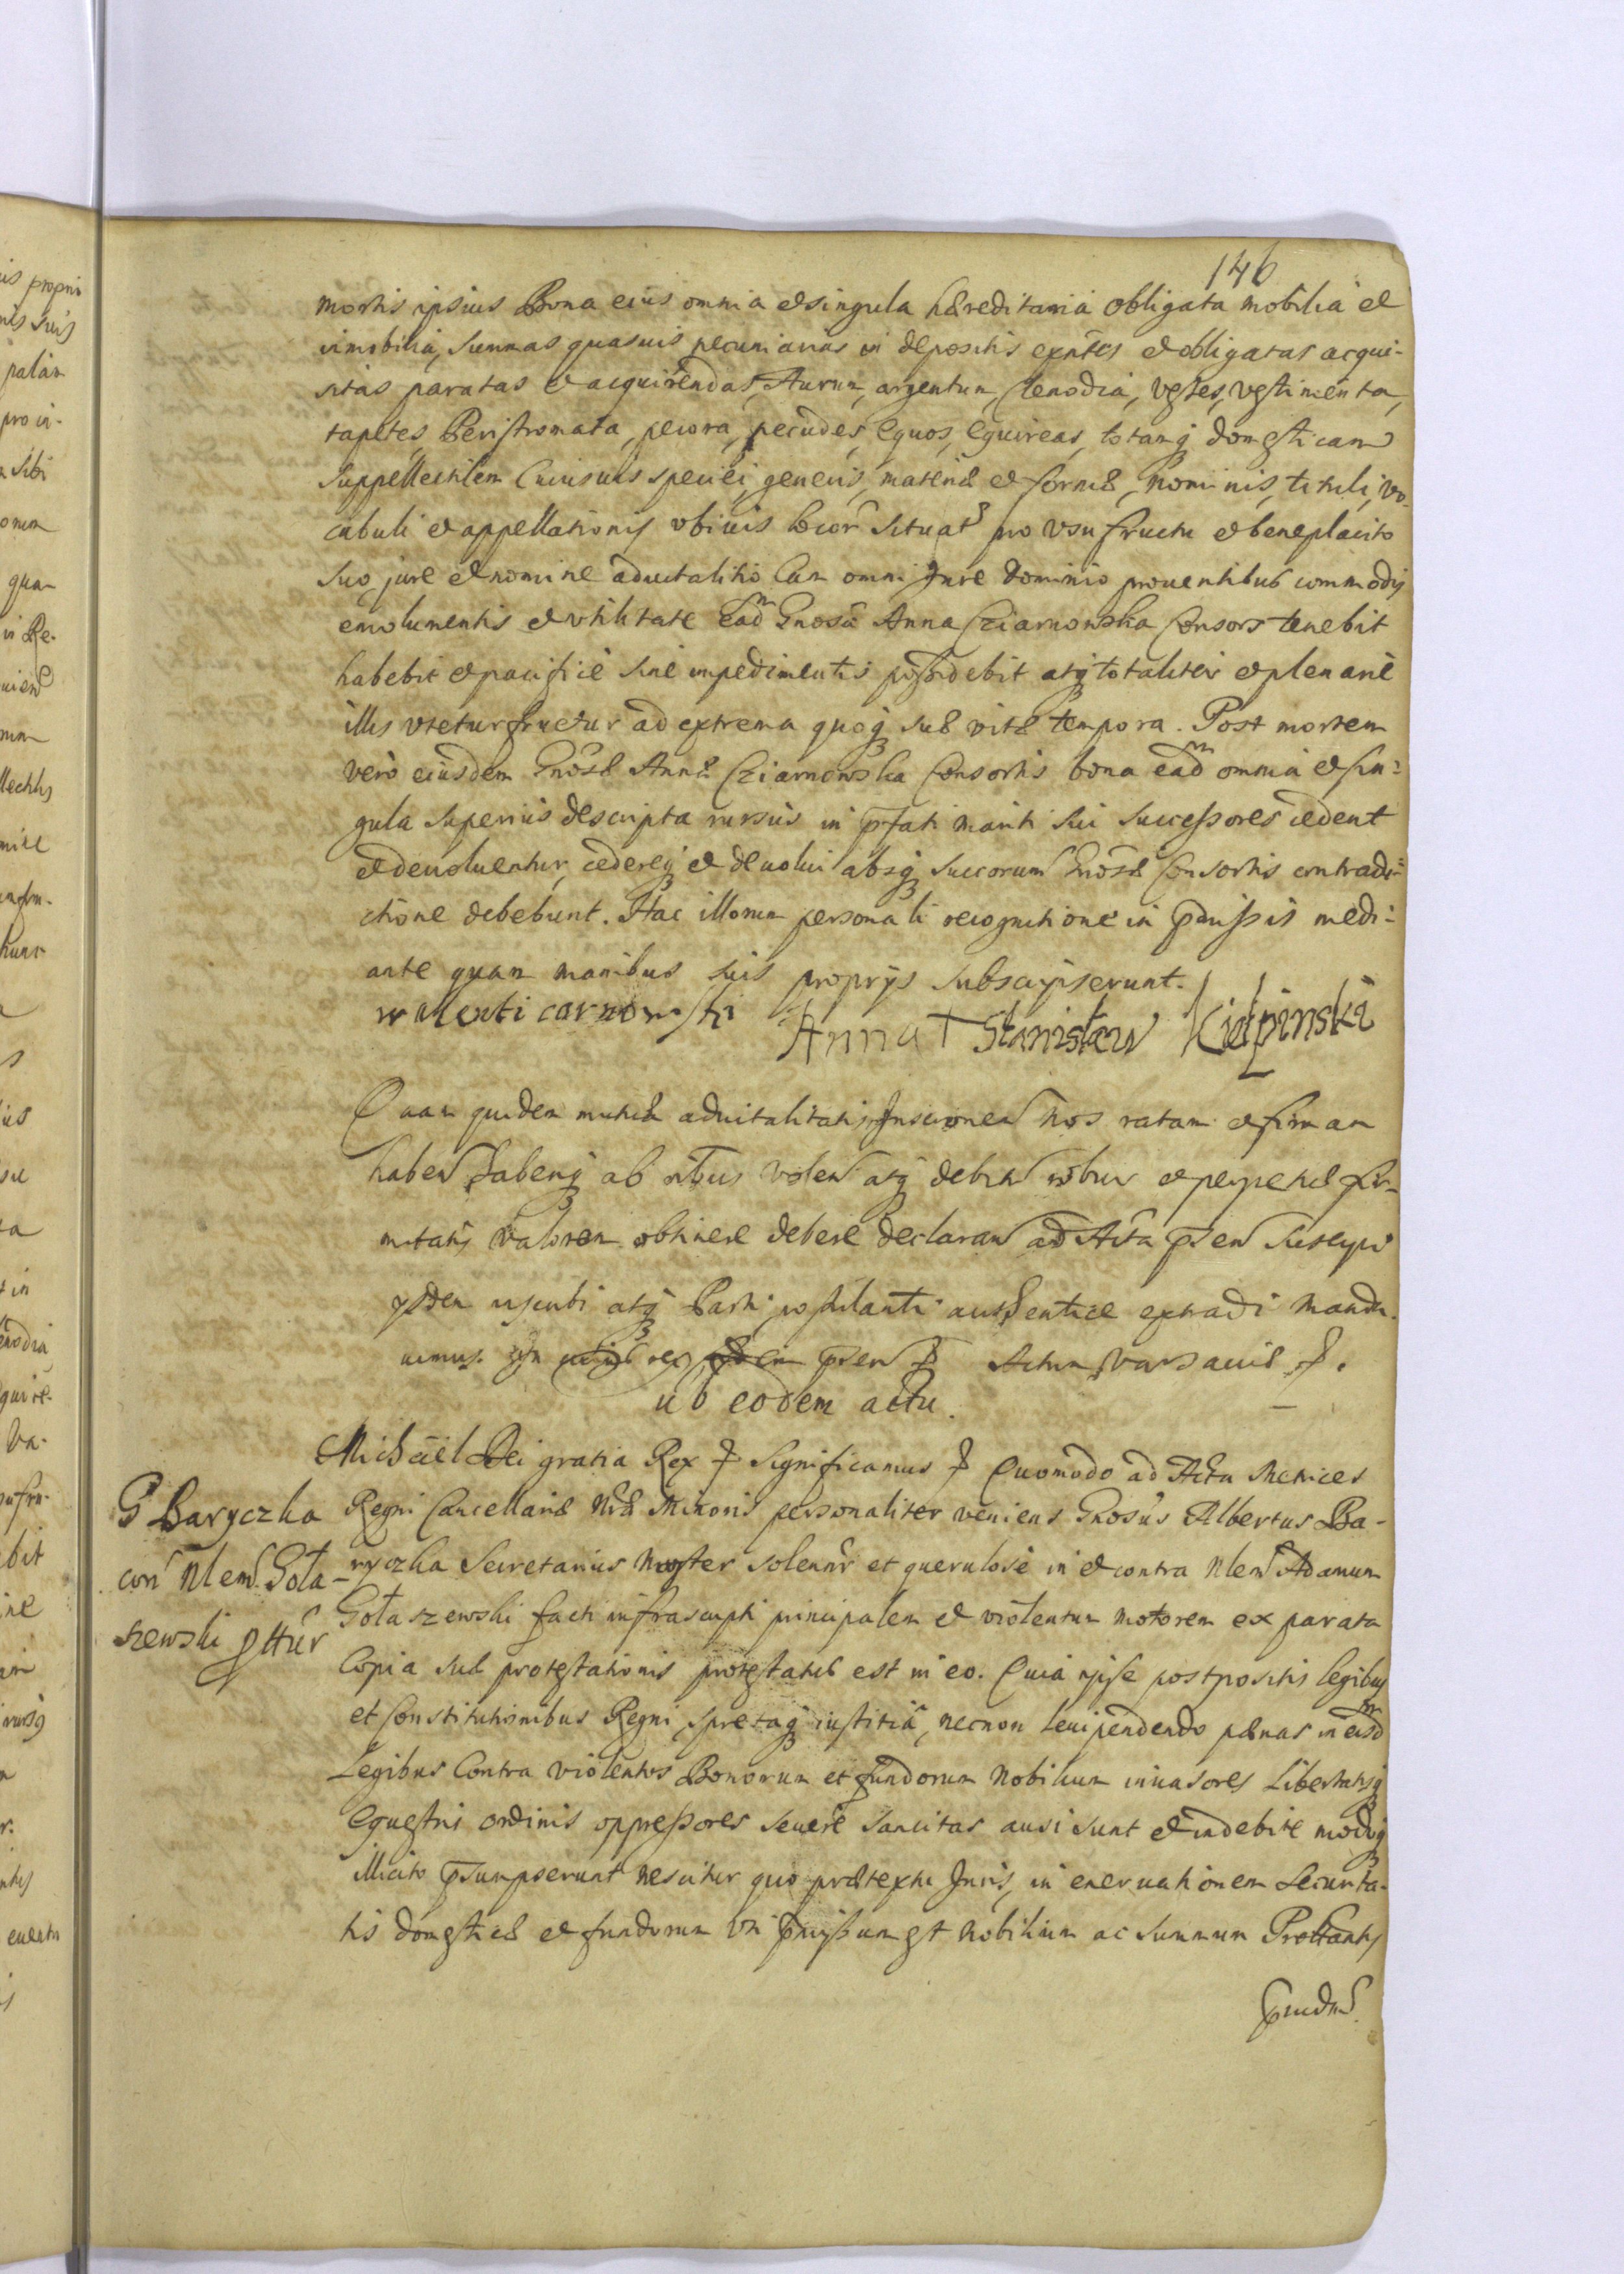 146
mortis ipsius Bona eius omnia et singula hæreditaria obligata mobilia et
immobilia, summas quasuis pecuniarias in depositis exntes et obligatas acqui-
sitas paratas et acquirendas, Aurum, argentum, Clenodia, vestes, vestimenta,
tapetes, Peristromata, pecora, pecudes, Equos, Equireas, totamq domesticam
suppellectilem Cuiusuis speciei, generis, materiæ et formæ, nominis, tituli, vo-
cabuli et appellationis vbiuis locor situat pro vsufructu et beneplacito
suo, jure et nomine aduitalitio Cum omni Jure Dominio prouentibus commodis
emolumentis et vtilitate eadm Gnosa Anna Cziarnowska Consors tenebit
habebit et pacificè sine impedimentis possidebit atq totaliter et plenariè
illis vtetur fruetur ad extrema quoq suæ vitæ tempora. Post mortem
verò eiusdem Gnosæ Annæ Cziarnowska Consortis bona eadm omnia et sin-
gula superius descripta rursus in pfati mariti sui successores cedent
et deuoluentur, cedereq et deuolui absq succorum Gnosæ Consortis contradi-
ctione debebunt. Hac illorum personali recognitione in pmissis medi-
ante quam manibus suis proprijs subscripserunt.
walenti carnowski Anna T Stanisław Kiełpinski
Quam quidem mutuæ aduitalitatis Inscriones nos ratam et firmam
haben haberiq ab oibus volen atq debitu robur et perpetuæ fir-
mitatis valorem obtinere debere declaran ad Acta pñen suscepi
ysdem inscribi atq Parti postulanti authentice extradi manda-
uimus. In cuius rei pñen Actum Varsauiæ
ub eodem actu.
Michael Dei gratia Rex Significamus Quomodo ad Acta Metrices
G Baryczka Regni Cancellariæ Nræ Minoris personaliter veniens Gnosus Albertus Ba-
con Nlem Goła- ryczka Secretarius Noster solennr et querulosè in et contra Nlem Adamum
szewski pttur Gołaszewski facti infrascripti principalem et violentum motorem ex parata
Copia suæ protestationis protestatus est in eo. Quia ipse postpositis legibus
et Constitutionibus Regni, spretaq iustitiâ, necnon leuipendendo pænas in eisdm
Legibus Contra violentos Bonorum et fundorum Nobilium inuasores Libertatisq
Equestris ordinis oppressores seuerè sancitas ausi sunt et indebite modoq
illicito psumpserunt nescitur quo prætextu Juris, in eneruationem Securita-
tis domesticæ et fundorum vti pmissum est Nobilium ac summum Prottantis